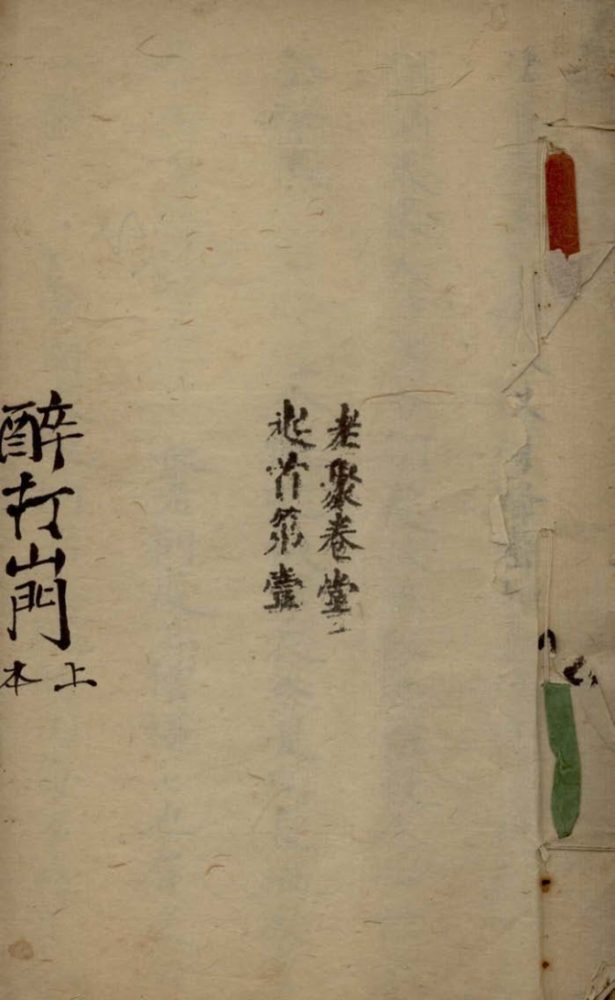 老聚卷堂
起首第壹
醉打山門
上本